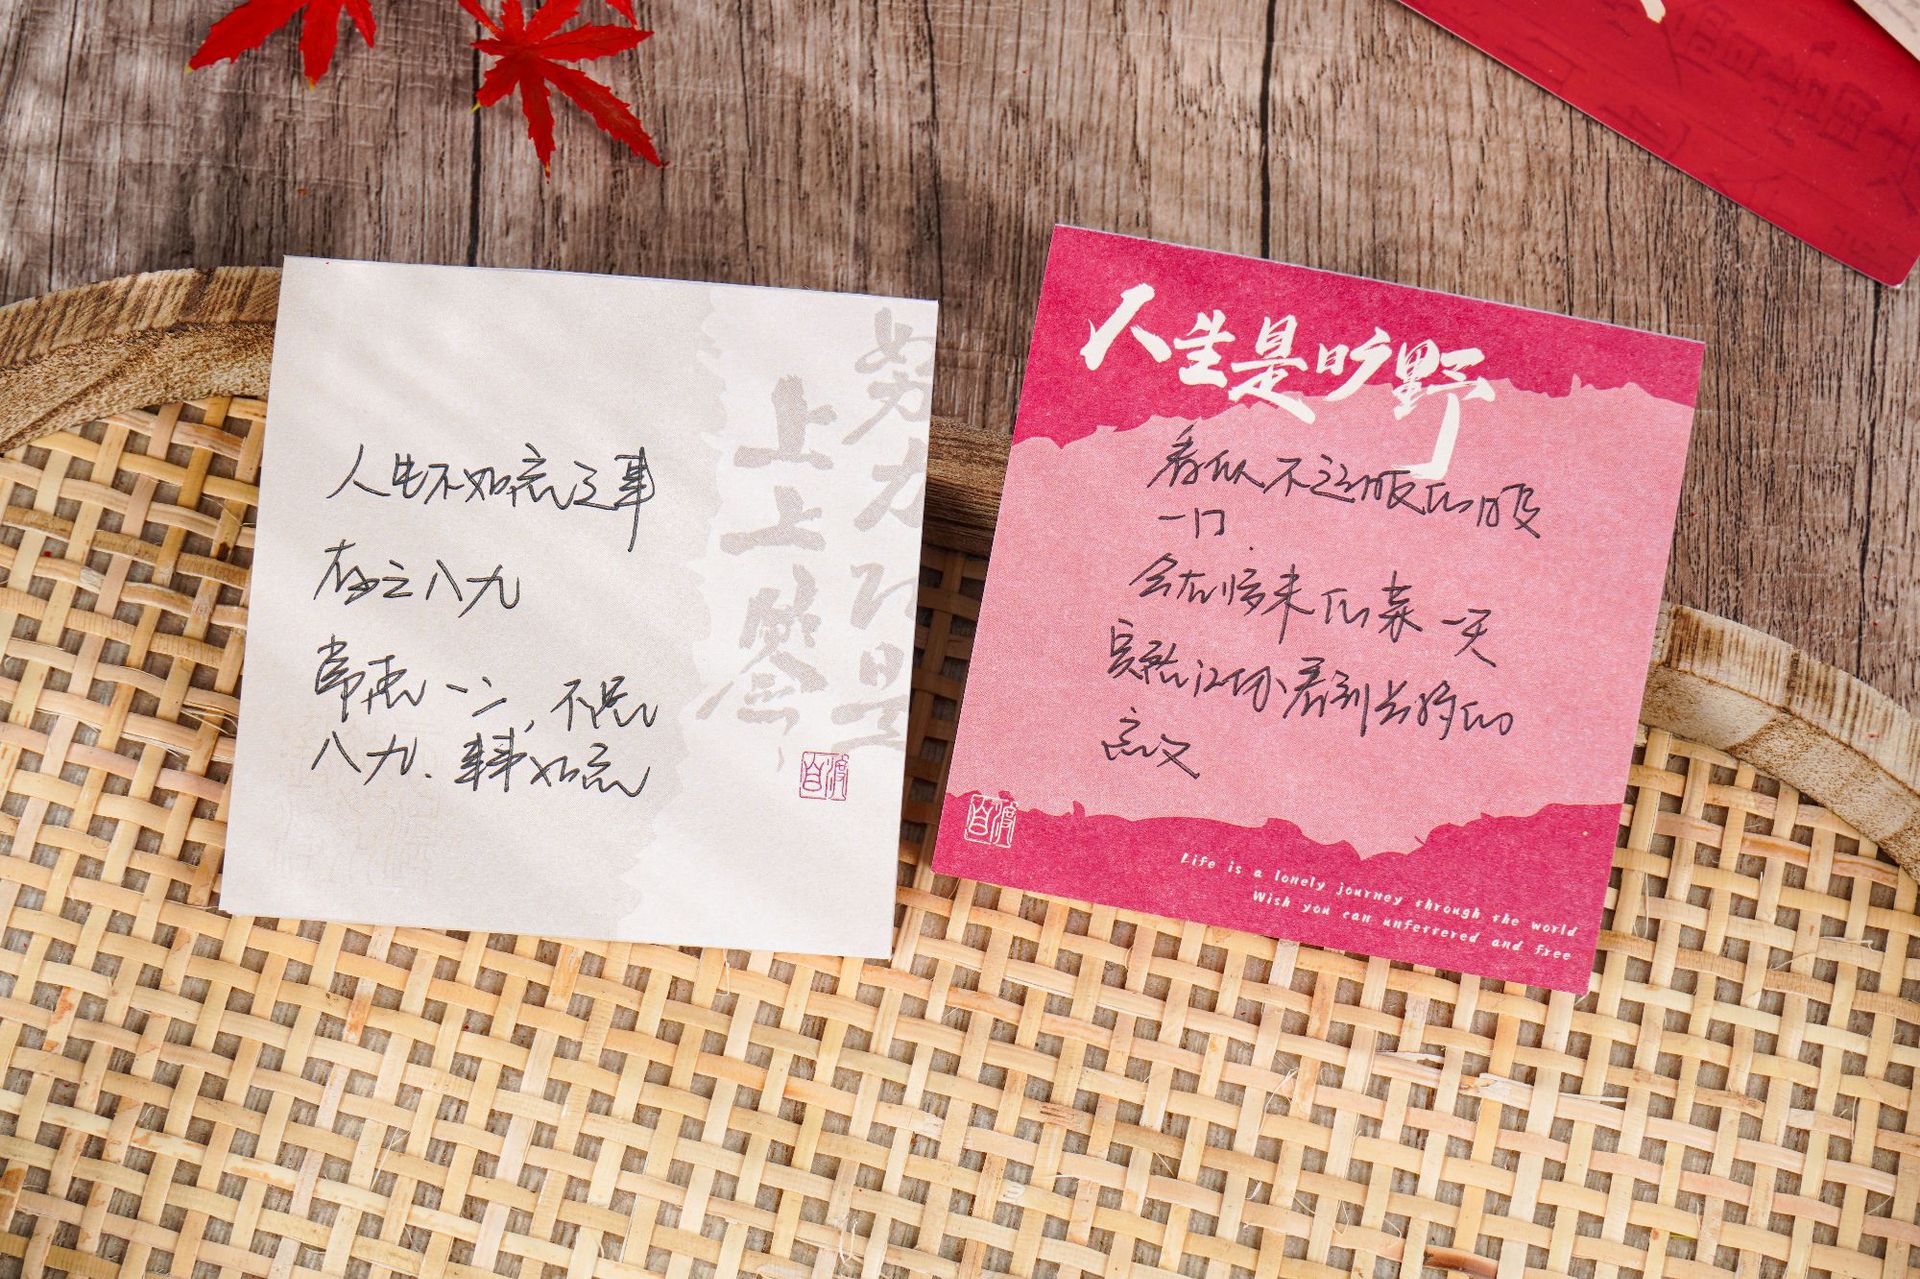 人生不如意之事
有之八九
常想一二，不思
八九，事事如意
努力才是
上上签
自渡
人生是旷野
看似不起眼的日复
一日.
会在将来的某一天
突然让你看到坚持的
意义
自渡
Life is a lonely journey through the world
Wish you can unferrered and free